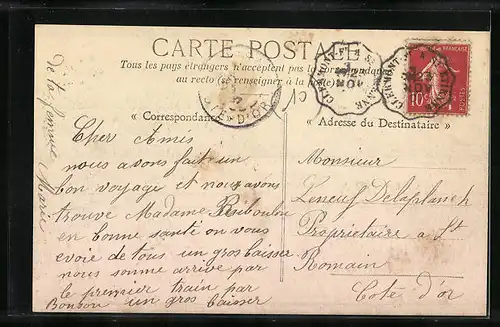 CARTE POSTALE
Tous les pays étrangers n'acceptent pas la correspondance
au recto (se renseigner à la Poste)
« Correspondance »
« Adresse du Destinataire »
10c
POSTES
CLERMONT-F
CÔTE-D'OR
de ta femme
Marie
Cher Amis
nous avons fait un
bon voyage et nous avons
trouve Madame
en bonne santé on vous
evoie de tous un gros baisser
nous somme arrive par
le premier train par
Bonbon un gros baisser
Monsieur
Proprietaire a St
Romain
Cote d'or